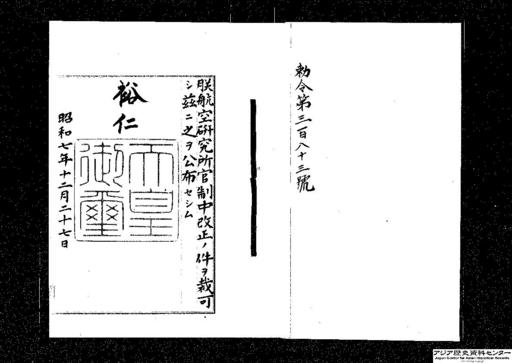 勅令第三百八十三號
朕航空研究所官制中改正ノ件ヲ裁可
シ茲ニ之ヲ公布セシム
裕仁
天皇御璽
昭和七年十二月二十七日
アジア歴史資料センター
Japan Center for Asian Historical Records